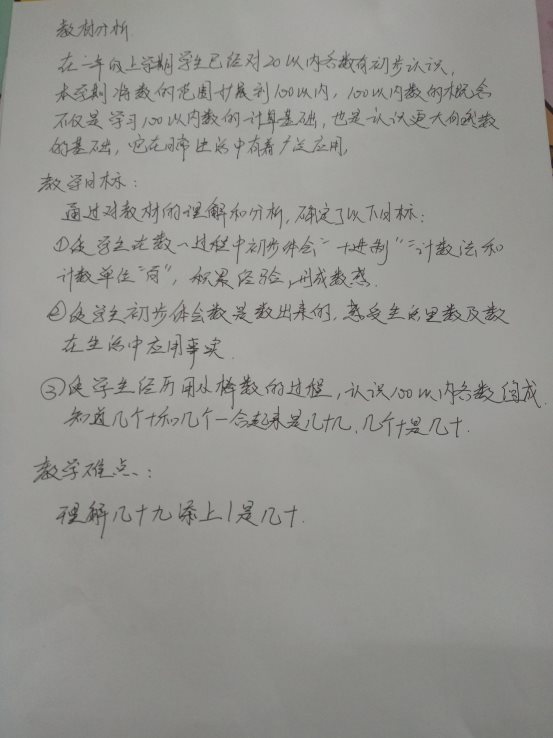 教材分析
在一年级上学期学生已经对20以内各数有初步认识,
本学期将数的范围扩展到100以内,100以内数的概念
不仅是学习100以内数的计算基础,也是认识更大自然数
的基础,它在日常生活中有着广泛应用,
教学目标:
通过对教材的理解和分析,确定了以下目标:
①使学生在数一过程中初步体会"十进制"计数法和
计数单位"百",积累经验,形成数感.
②使学生初步体会数是数出来的,感受生活里数及数
在生活中应用事实.
③使学生经历用小棒数的过程,认识100以内各数组成.
知道几个十和几个一合起来是几十几,几个十是几十.
教学难点:
理解几十九添上1是几十.